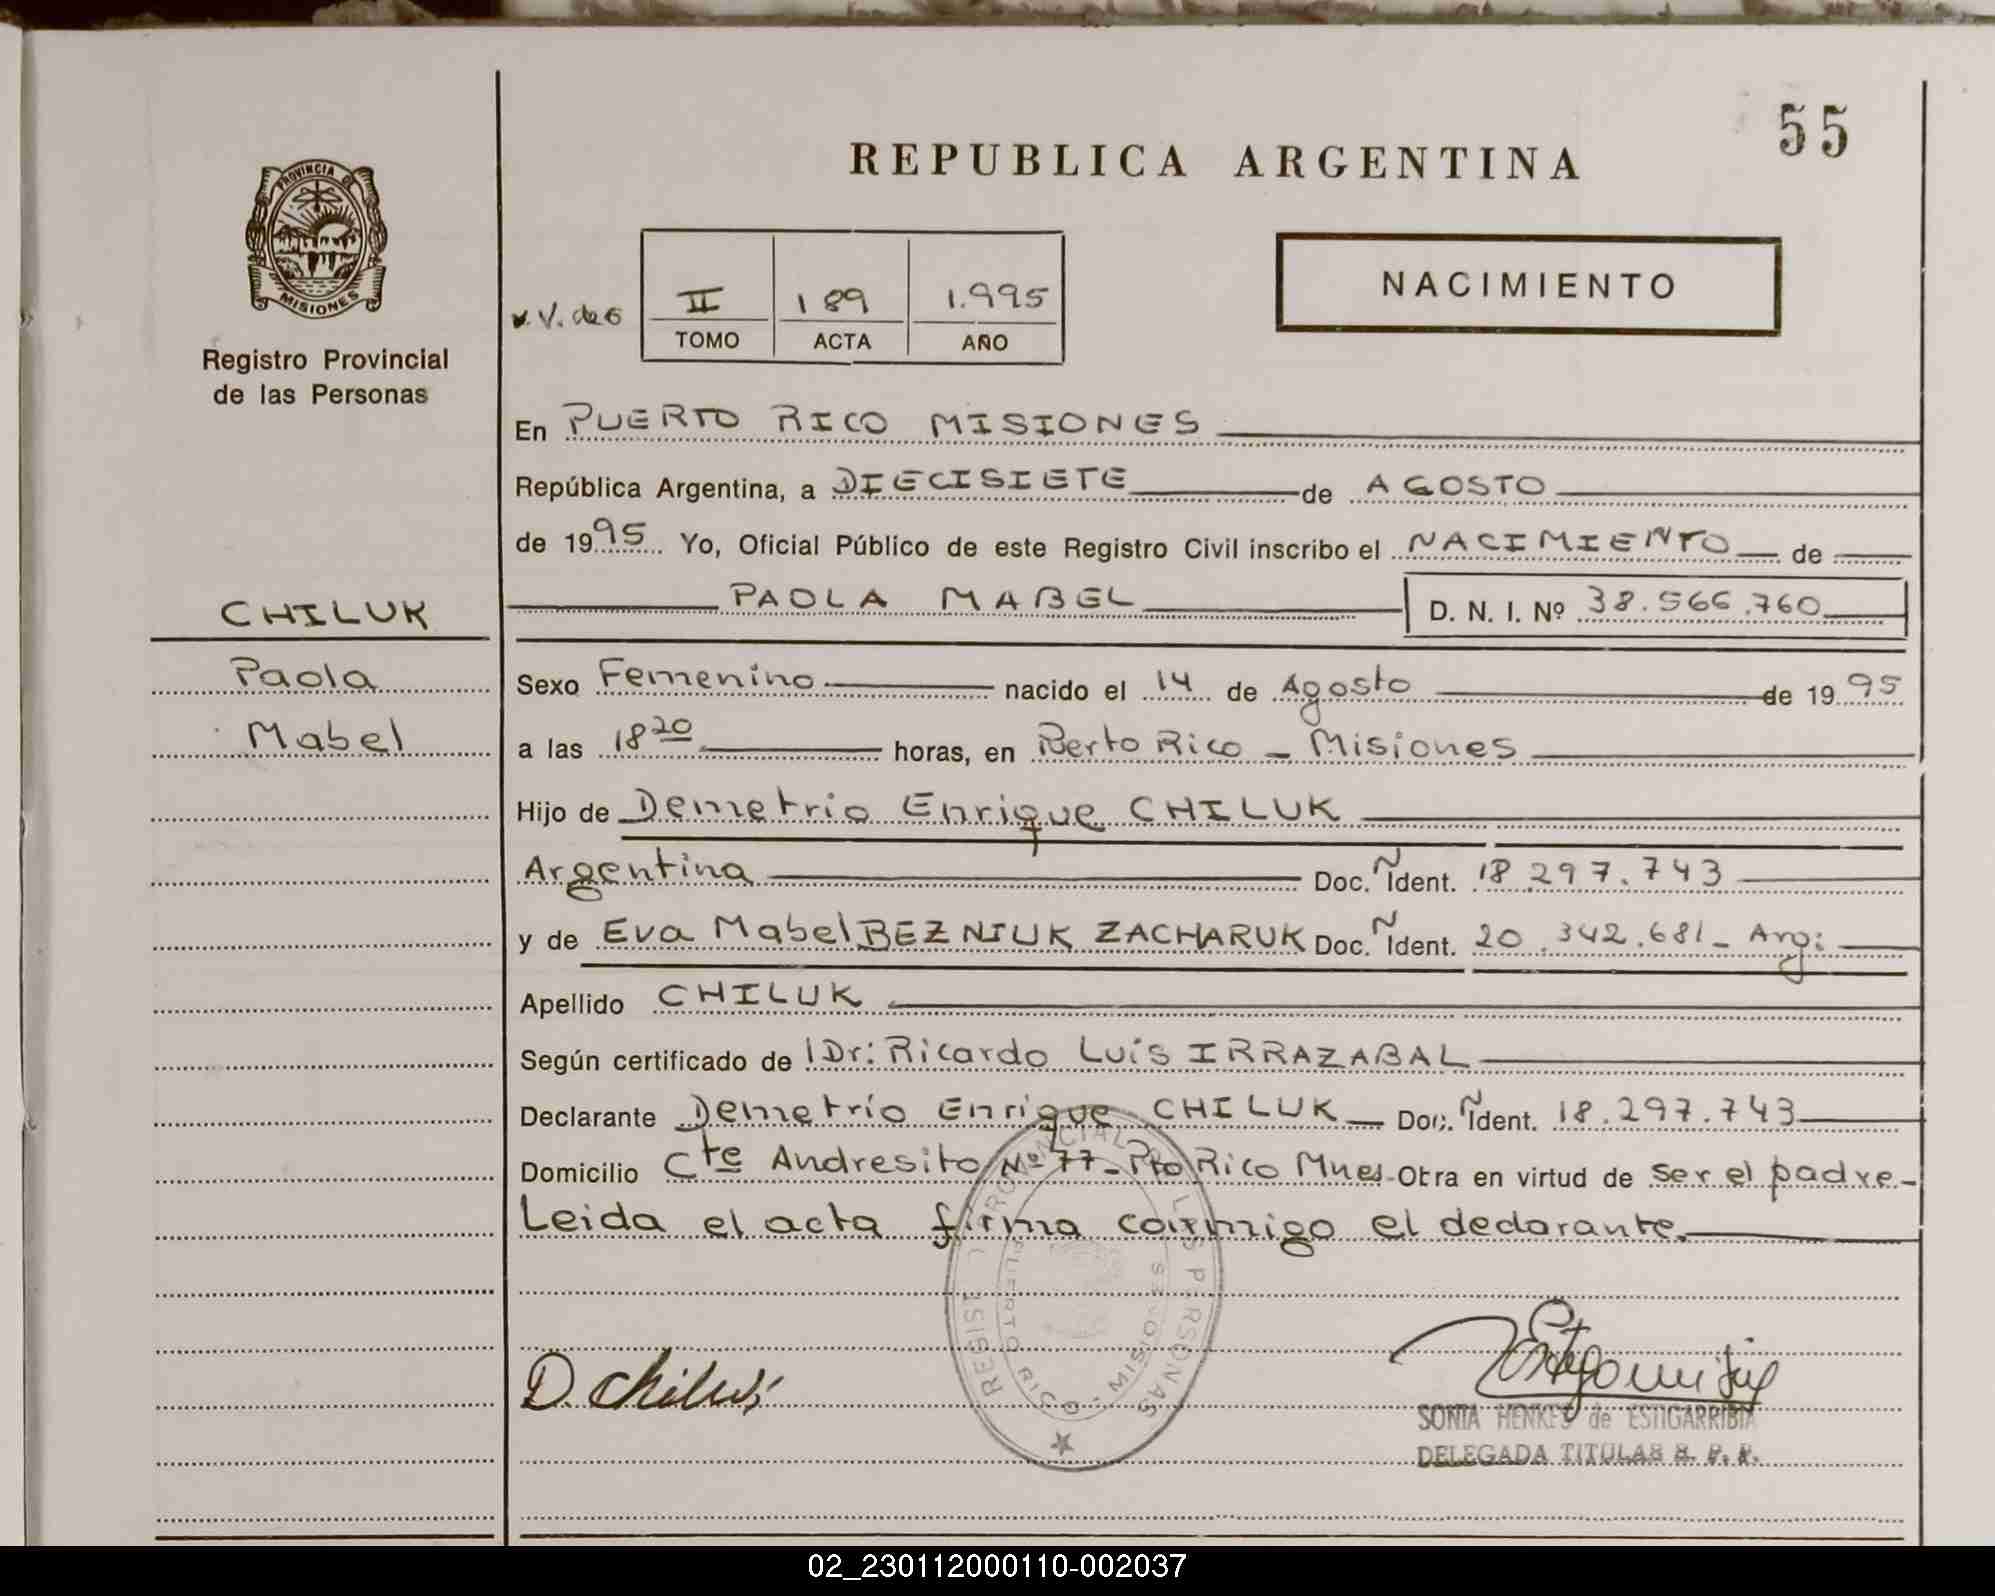 55
REPUBLICA ARGENTINA
PROVINCIA DE
MISIONES
NACIMIENTO
v.V. de 6
II 189 1.995
TOMO ACTA AÑO
Registro Provincial
de las Personas
En PUERTO RICO MISIONES
República Argentina, a DIECISIETE de AGOSTO
de 1995 Yo, Oficial Público de este Registro Civil inscribo el NACIMIENTO de
CHILUK
PAOLA MABEL D. N. I. Nº 38.566.760
Paola
Sexo Femenino nacido el 14 de Agosto de 1995
Mabel
a las 18 20 horas, en Perto Rico - Misiones
Hijo de Demetrio Enrique CHILUK
Argentina Doc. Ñ Ident. 18.297.743
y de Eva Mabel BEZNIUK ZACHARUK Doc. Ñ Ident. 20.342.681- Arg:
Apellido CHILUK
Según certificado de Dr: Ricardo Luis IRRAZABAL
Declarante Demetrio Enrique CHILUK Doc. Ñ Ident. 18.297.743
Domicilio Cte Andresito Nº 77- Pto Rico Mnes- Otra en virtud de ser el padre-
Leida el acta firma conmigo el declarante.
PUERTO RICO - MISIONES
D. Chiluk
SONIA HENKES de ESTIGARRIBIA
DELEGADA TITULAR R. P. P.
02_230112000110-002037